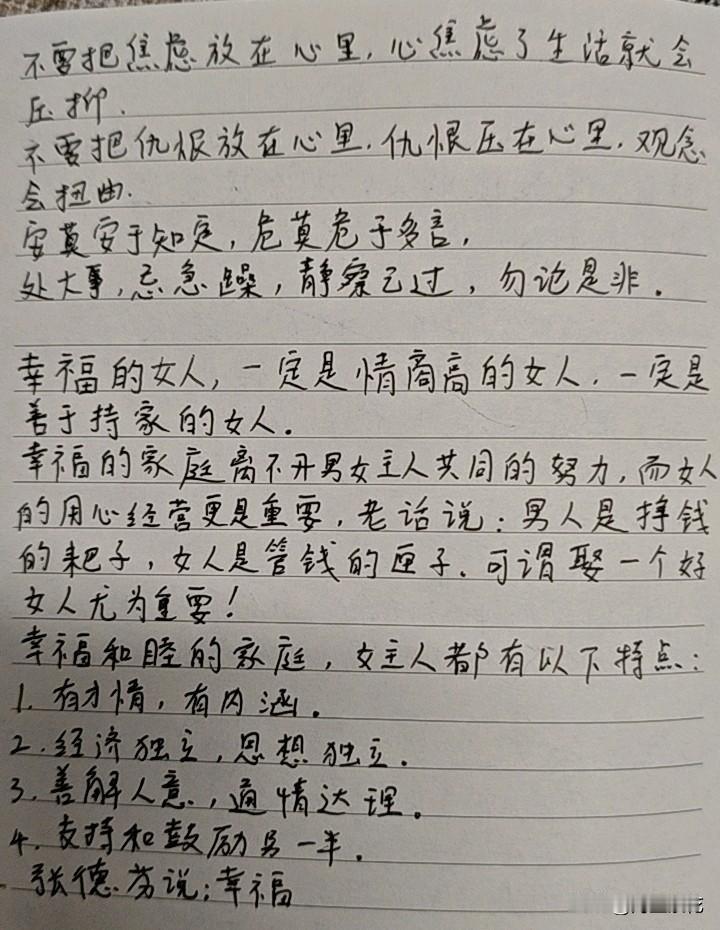 不要把焦虑放在心里,心焦虑了生活就会
压抑.
不要把仇恨放在心里.仇恨压在心里.观念
会扭曲.
安莫安于知足,危莫危于多言,
处大事,忌急躁,静察己过,勿论是非.
幸福的女人,一定是情商高的女人.一定是
善于持家的女人.
幸福的家庭离不开男女主人共同的努力,而女人
的用心经营更是重要,老话说:男人是挣钱
的耙子,女人是管钱的匣子.可谓娶一个好
女人尤为重要!
幸福和睦的家庭,女主人都有以下特点:
1.有才情,有内涵.
2.经济独立,思想独立.
3.善解人意,通情达理.
4.支持和鼓励另一半.
张德芬说:幸福